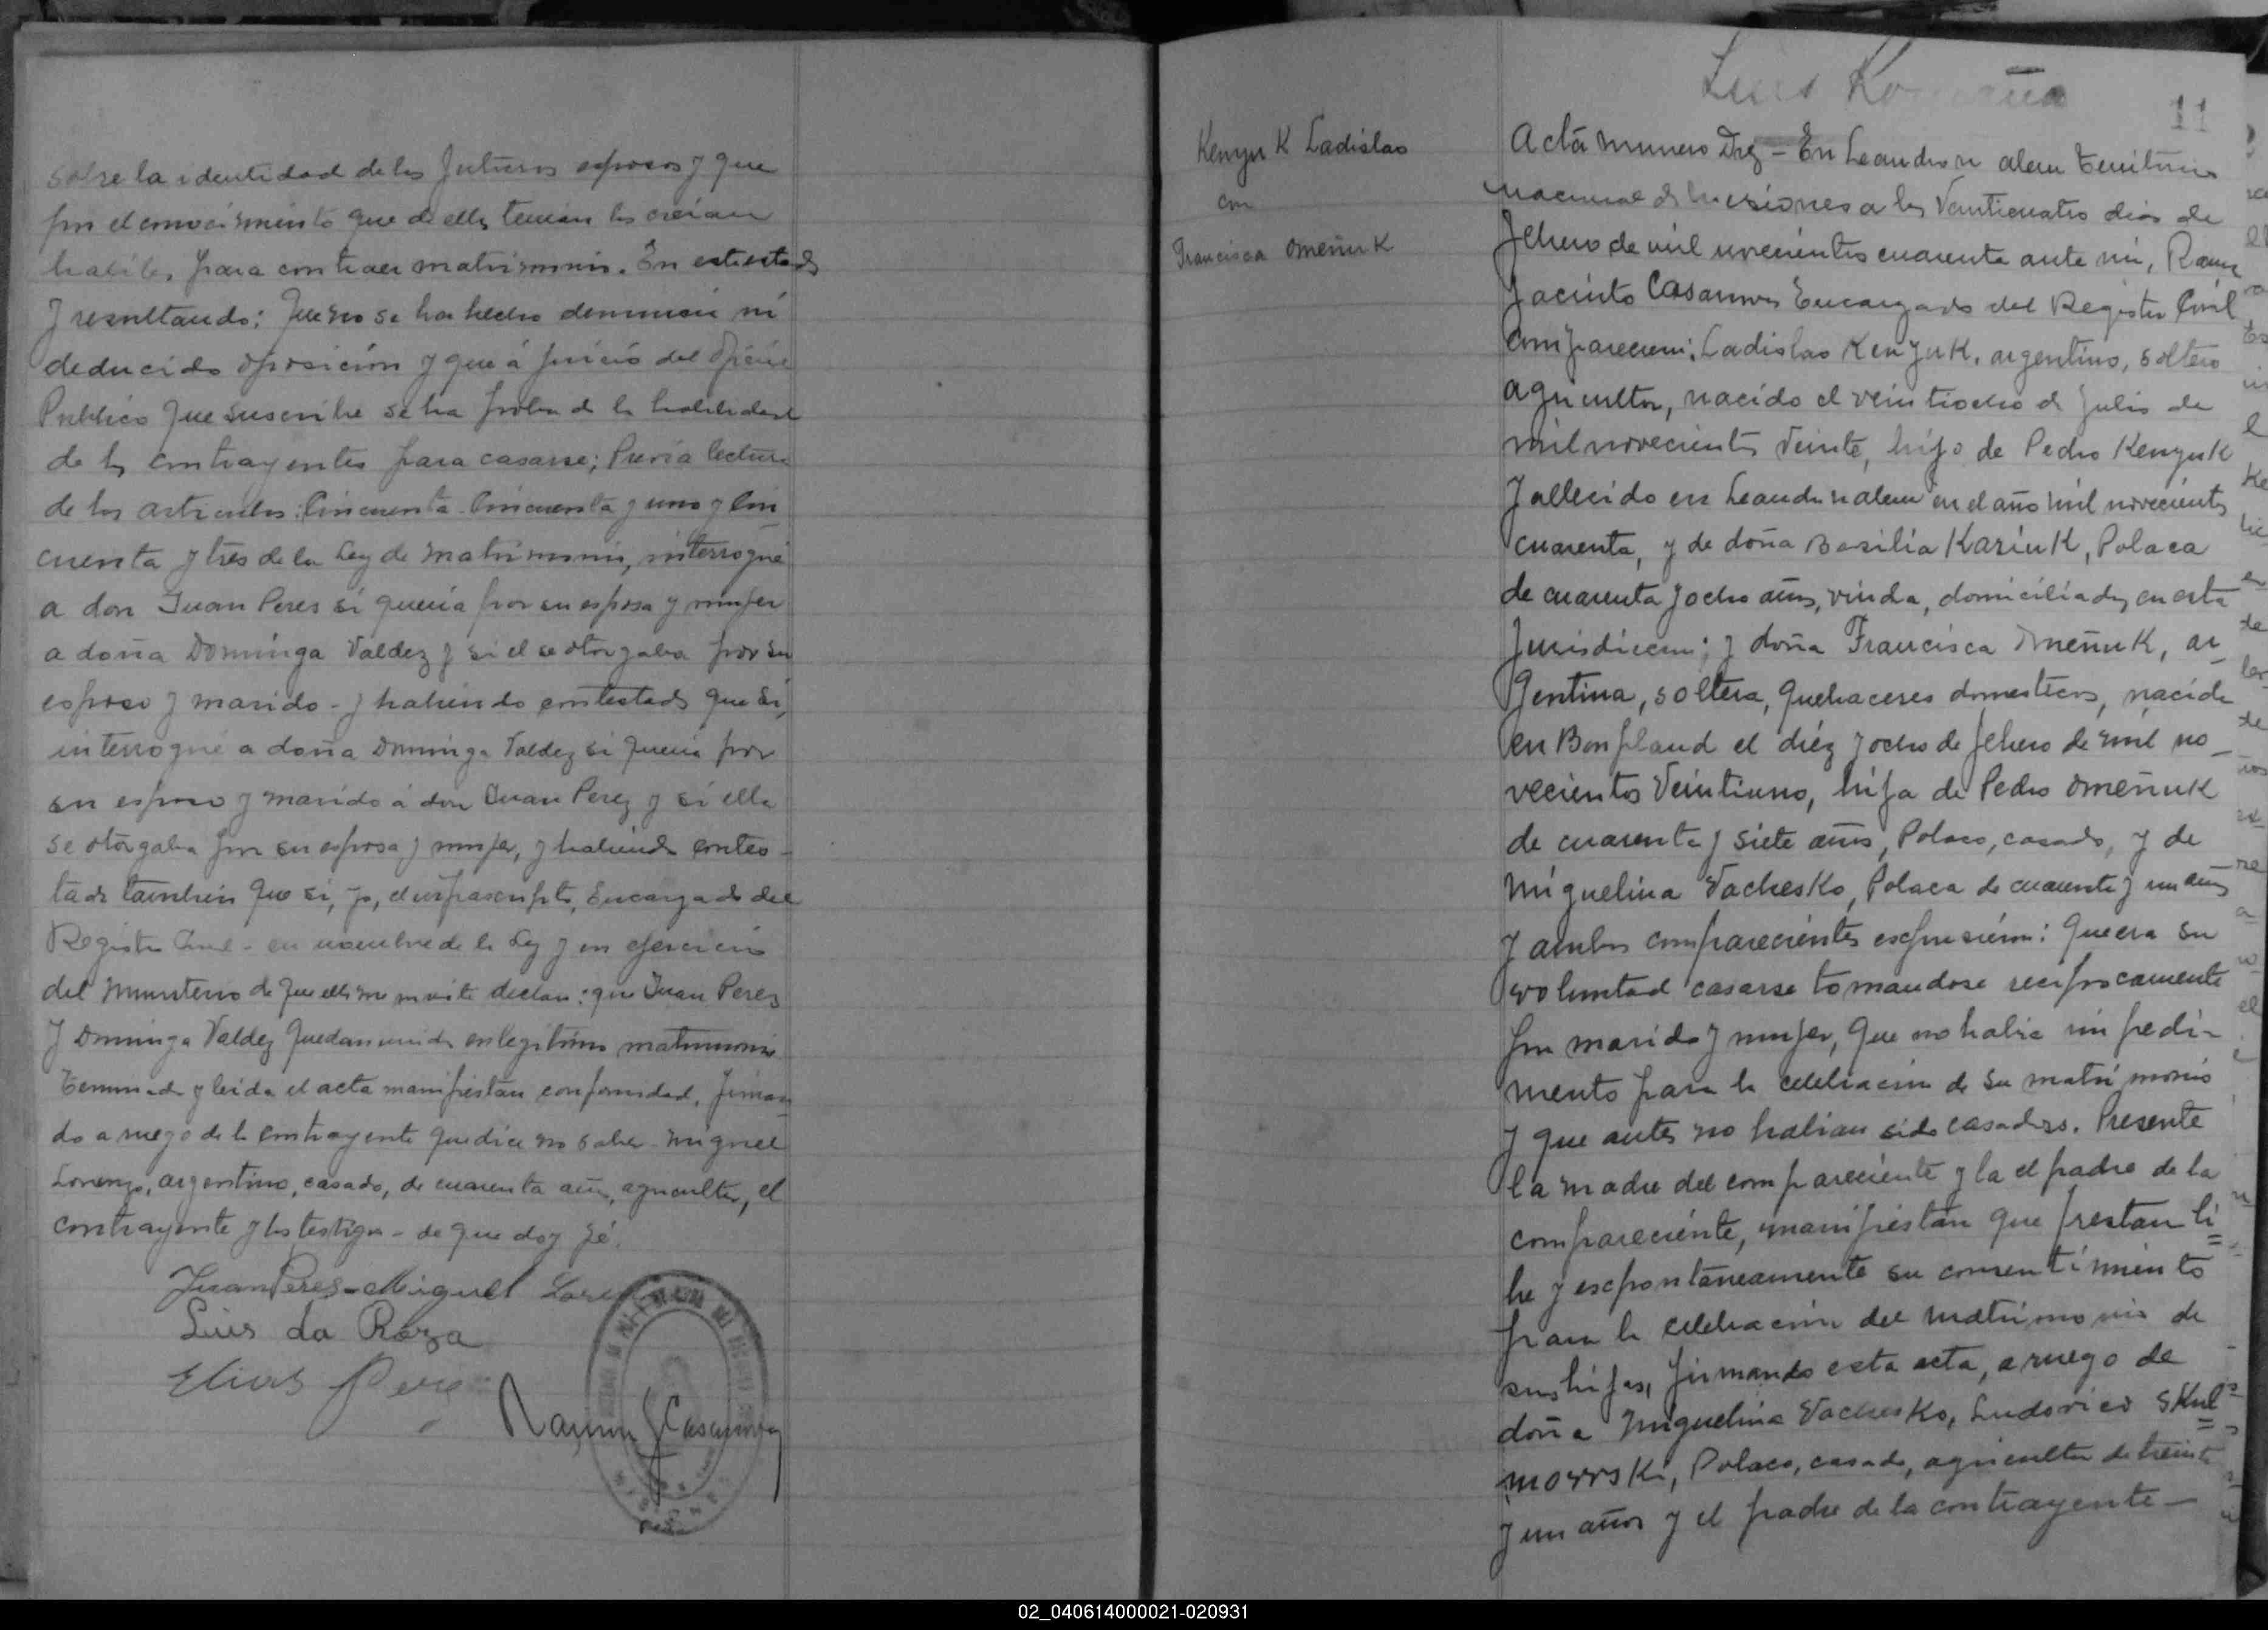 sobre la identidad de los futuros esposos y que
por el conocimiento que de ellos tenian los creian
habiles para contraer matrimonio. En este estado
y resultando: Que no se ha hecho denuncia ni
deducido oposición y que á juicio del Oficial
Publico que suscribe se ha probado la habilidad
de los contrayentes para casarse; Previa lectura
de los articulos: Cincuenta Cincuenta y uno y Cin
cuenta y tres de la Ley de Matrimonio, interrogué
a don Juan Peres si queria por su esposa y mujer
a doña Dominga Valdez y si el se otorgaba por su
esposo y marido - y habiendo contestado que si,
interrogué a doña Dominga Valdez si queria por
su esposo y marido á don Juan Perez y si ella
se otorgaba por su esposa y mujer, y habiendo contes-
tado tambien que si, yo, el infrascripto, Encargado del
Registro Civil - en nombre de la Ley y en ejercicio
del Ministerio de que ella me inviste declaro: que Juan Peres
y Dominga Valdez quedan unidos en legitimo matrimonio
Terminada y leida el acta manifiestan conformidad, firman
do a ruego de la contrayente que dice no saber Miguel
Lorenzo, argentino, casado, de cuarenta años, agricultor, el
contrayente y los testigos - de que doy fé.
Juan Peres - Miguel
Luis da Roza
Elias Pere
Ramon J Casanova
Luis
11
Kenyuk Ladislao
con
Francisca Omeñuk
Acta numero Diez - En Leandro n alem Territorio
nacional de Misiones a los Veinticuatro dias de
febrero de mil novecientos cuarenta ante mi, Ramon
Jacinto Casanova Encargado del Registro Civil
comparecieron: Ladislao Kenyuk, argentino, soltero
agricultor, nacido el veintiocho de Julio de
mil novecientos veinte, hijo de Pedro Kenyuk
fallecido en Leandro n alem en el año mil novecientos
cuarenta, y de doña Basilia Kariuk, Polaca
de cuarenta y ocho años, viuda, domiciliados en esta
Jurisdiccion; y doña Francisca Omeñuk, ar
gentina, soltera, quehaceres domesticos, nacida
en Bonpland el diéz y ocho de febrero de mil no-
vecientos Veintiuno, hija de Pedro Omeñuk
de cuarenta y siete años, Polaco, casado, y de
Miguelina Vachesko, Polaca de cuarenta y un años
y ambos comparecientes expusieron: Que era su
voluntad casarse tomandose reciprocamente
por marido y mujer, que no habia impedi-
mento para la celebracion de su matrimonio
y que antes no habian sido casados. Presente
la madre del compareciente y la el padre de la
compareciente, manifiestan que prestan li
bre y espontaneamente su consentimiento
para la celebracion del matrimonio de
sus hijos, firmando esta acta, a ruego de
doña Miguelina Vachesko, Ludovico Skul
movrski, Polaco, casado, agricultor de treinta
y un años y el padre de la contrayente -
02_040614000021-020931